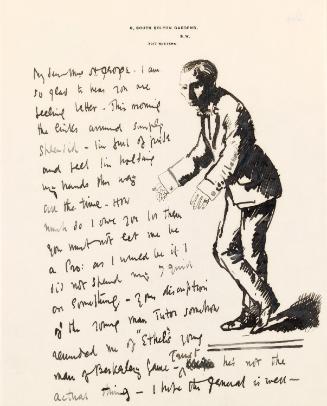 6, SOUTH BOLTON GARDENS,
S.W.
My dear Mrs – I am
so glad to hear you are
feeling better – This morning
the links arrived simply
splendid – I'm full of pride
and feel I'm holding
my hands this way
all the time – How
much do I owe you for them
You must not let me be
a Pro: as I would be if I
did not spend my 7 quid
on something – Your discription
of the young man Tutor somehow
reminded me of "Ethel's young
man of Berkeley Game – he's not the
actual thing – I hope the General is well –